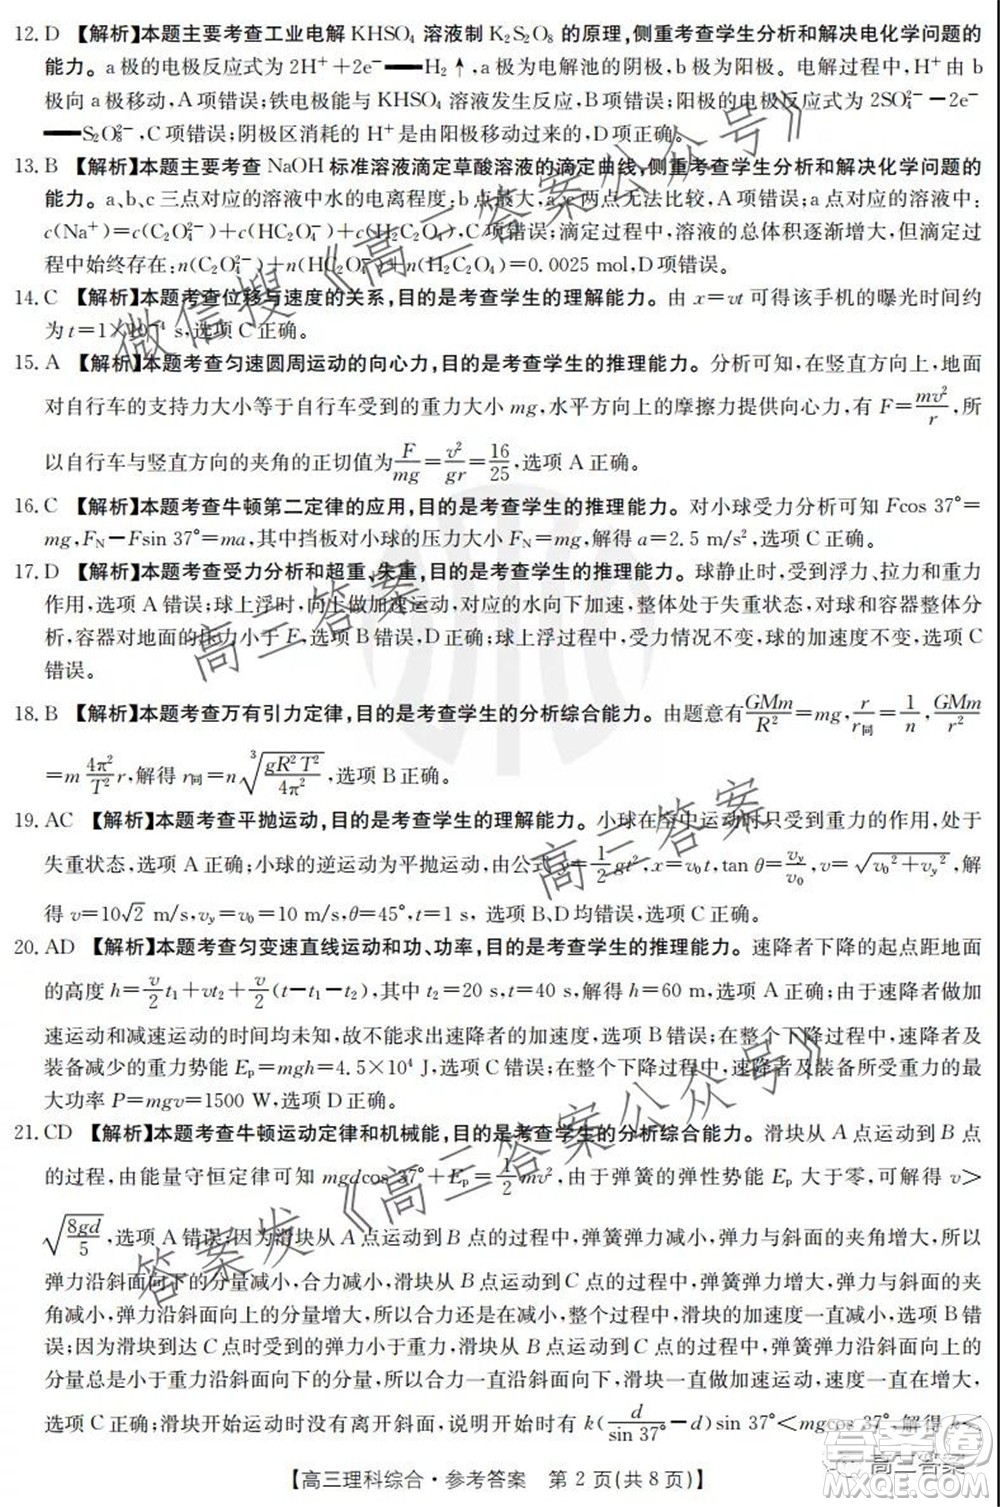 12. D 【解析】本题主要考查工业电解 KHSO₄ 溶液制 K₂S₂O₈ 的原理,侧重考查学生分析和解决电化学问题的
能力。a 极的电极反应式为 2H⁺+2e⁻══H₂↑,a 极为电解池的阴极,b 极为阳极。电解过程中,H⁺由 b
极向 a 极移动,A 项错误;铁电极能与 KHSO₄ 溶液发生反应,B 项错误;阳极的电极反应式为 2SO₄²⁻−2e⁻
══S₂O₈²⁻,C 项错误;阴极区消耗的 H⁺是由阳极移动过来的,D 项正确。
13. B 【解析】本题主要考查 NaOH 标准溶液滴定草酸溶液的滴定曲线,侧重考查学生分析和解决化学问题的
能力。a、b、c 三点对应的溶液中水的电离程度,b 点最大,a、c 两点无法比较,A 项错误;a 点对应的溶液中:
c(Na⁺)=c(C₂O₄²⁻)+c(HC₂O₄⁻)+c(H₂C₂O₄),B 项正确;滴定过程中,溶液的总体积逐渐增大,但滴定过
程中始终存在:n(C₂O₄²⁻)+n(HC₂O₄⁻)+n(H₂C₂O₄)=0.0025 mol,D 项错误。
14. C 【解析】本题考查位移与速度的关系,目的是考查学生的理解能力。由 x=vt 可得该手机的曝光时间约
为 t=1×10⁻⁴ s,选项 C 正确。
15. A 【解析】本题考查匀速圆周运动的向心力,目的是考查学生的推理能力。分析可知,在竖直方向上,地面
对自行车的支持力大小等于自行车受到的重力大小 mg,水平方向上的摩擦力提供向心力,有 F=mv²/r,所
以自行车与竖直方向的夹角的正切值为 F/mg=v²/gr=16/25,选项 A 正确。
16. C 【解析】本题考查牛顿第二定律的应用,目的是考查学生的推理能力。对小球受力分析可知 Fcos 37°=
mg,F_N−Fsin 37°=ma,其中挡板对小球的压力大小 F_N=mg,解得 a=2.5 m/s²,选项 C 正确。
17. D 【解析】本题考查受力分析和超重、失重,目的是考查学生的推理能力。球静止时,受浮力、拉力和重力
作用,选项 A 错误;球上浮时,向上做加速运动,对应的水向下加速,整体处于失重状态,对球和容器整体分
析,容器对地面的压力小于 E,选项 B 错误,D 正确;球上浮过程中,受力情况不变,球的加速度不变,选项 C
错误。
18. B 【解析】本题考查万有引力定律,目的是考查学生的分析综合能力。由题意有 GMm/R²=mg,r/r同=1/n,GMm/r²
=m 4π²/T² r,解得 r同=n∛(gR²T²/4π²),选项 B 正确。
19. AC 【解析】本题考查平抛运动,目的是考查学生的理解能力。小球在空中运动时只受到重力的作用,处于
失重状态,选项 A 正确;小球的逆运动为平抛运动,由公式 y=1/2 gt²,x=v₀t,tan θ=v_y/v₀,v=√(v₀²+v_y²),解
得 v=10√2 m/s,v_y=v₀=10 m/s,θ=45°,t=1 s,选项 B、D 均错误,选项 C 正确。
20. AD 【解析】本题考查匀变速直线运动和功、功率,目的是考查学生的推理能力。速降者下降的起点距地面
的高度 h=v/2 t₁+vt₂+v/2(t−t₁−t₂),其中 t₂=20 s,t=40 s,解得 h=60 m,选项 A 正确;由于速降者做加
速运动和减速运动的时间均未知,故不能求出速降者的加速度,选项 B 错误;在整个下降过程中,速降者及
装备减少的重力势能 E_p=mgh=4.5×10⁴ J,选项 C 错误;在整个下降过程中,速降者及装备所受重力的最
大功率 P=mgv=1500 W,选项 D 正确。
21. CD 【解析】本题考查牛顿运动定律和机械能,目的是考查学生的分析综合能力。滑块从 A 点运动到 B 点
的过程,由能量守恒定律可知 mgdcos 37°+E_p=1/2 mv²,由于弹簧的弹性势能 E_p 大于零,可解得 v>
√(8gd/5),选项 A 错误;因为滑块从 A 点运动到 B 点的过程中,弹簧弹力减小,弹力与斜面的夹角增大,所以
弹力沿斜面向下的分量减小,合力减小,滑块从 B 点运动到 C 点的过程中,弹簧弹力增大,弹力与斜面的夹
角减小,弹力沿斜面向上的分量增大,合力还是在减小,所以整个过程中,滑块的加速度一直减小,选项 B 错
误;因为滑块到达 C 点时受到的弹力小于重力,所以滑块从 B 点运动到 C 点的过程中,弹簧弹力沿斜面向上的
分量总是小于重力沿斜面向下的分量,所以合力一直沿斜面向下,滑块一直做加速运动,速度一直在增大,
选项 C 正确;滑块开始运动时没有离开斜面,说明开始时有 k(d/sin 37°−d)sin 37°<mgcos 37°,解得 k<
【高三理科综合·参考答案 第 2 页(共 8 页)】
微信搜《高三答案公众号》
高三答案
高三答案
答案发《高三答案公众号》
高三答案